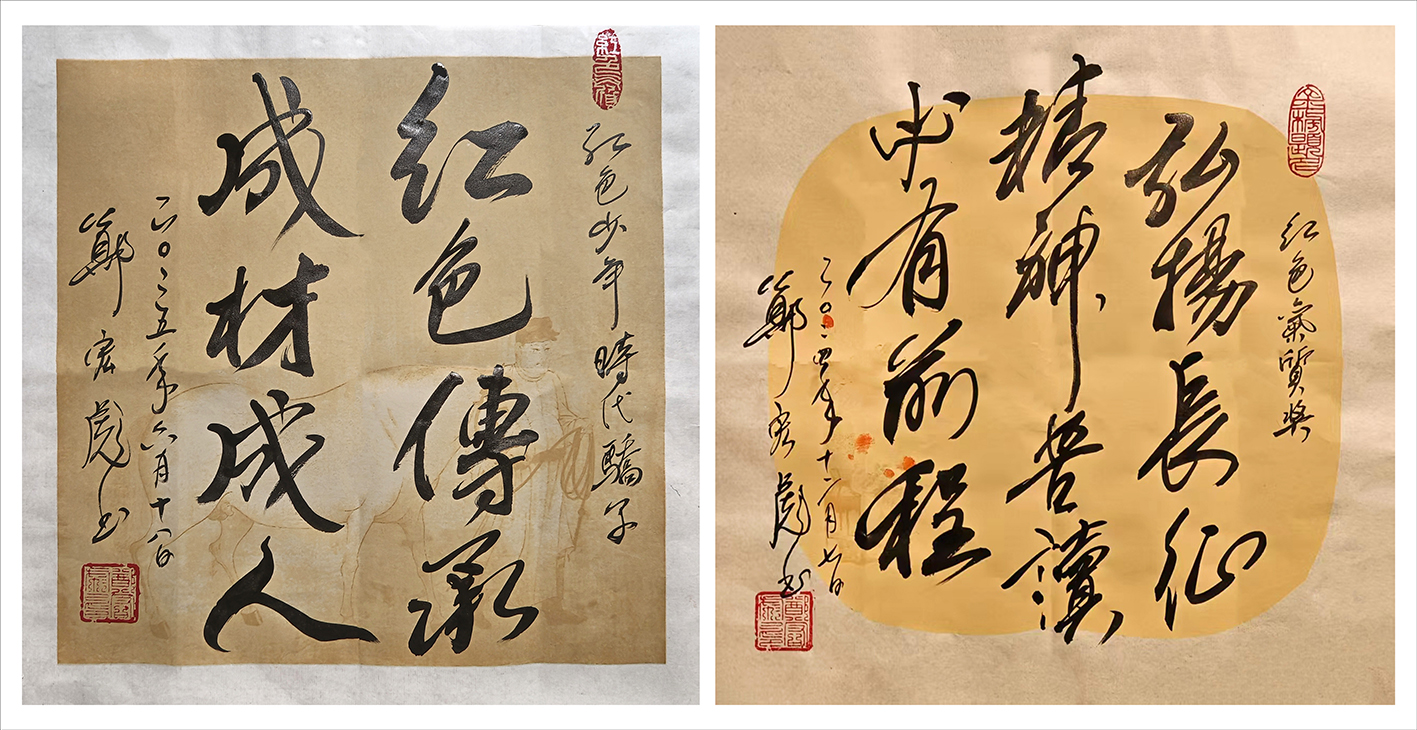 红色少年 時代驕子
红色傳承
成材成人
二〇二五年六月十八日
鄭宏彪书
红色氣質奖
弘揚長征
精神苦讀
必有前程
二〇二四年十二月七日
鄭宏彪书